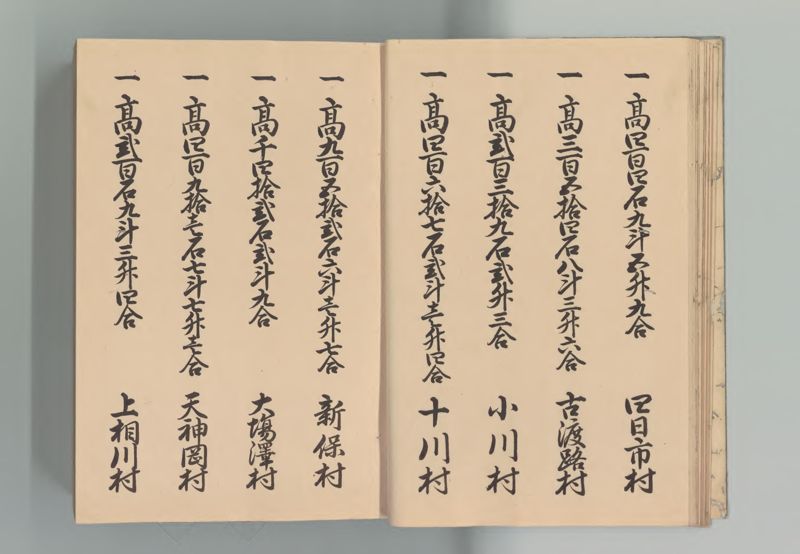 一 高四百四石九斗五升九合 四日市村
一 高三百五拾四石八斗三升六合 古渡路村
一 高弐百三拾九石弐升三合 小川村
一 高四百六拾七石弐斗壱升四合 十川村
一 高九百五拾弐石六斗壱升七合 新保村
一 高千四拾弐石弐斗九合 大場澤村
一 高四百九拾壱石七斗七升壱合 天神岡村
一 高弐百石九斗三升四合 上相川村